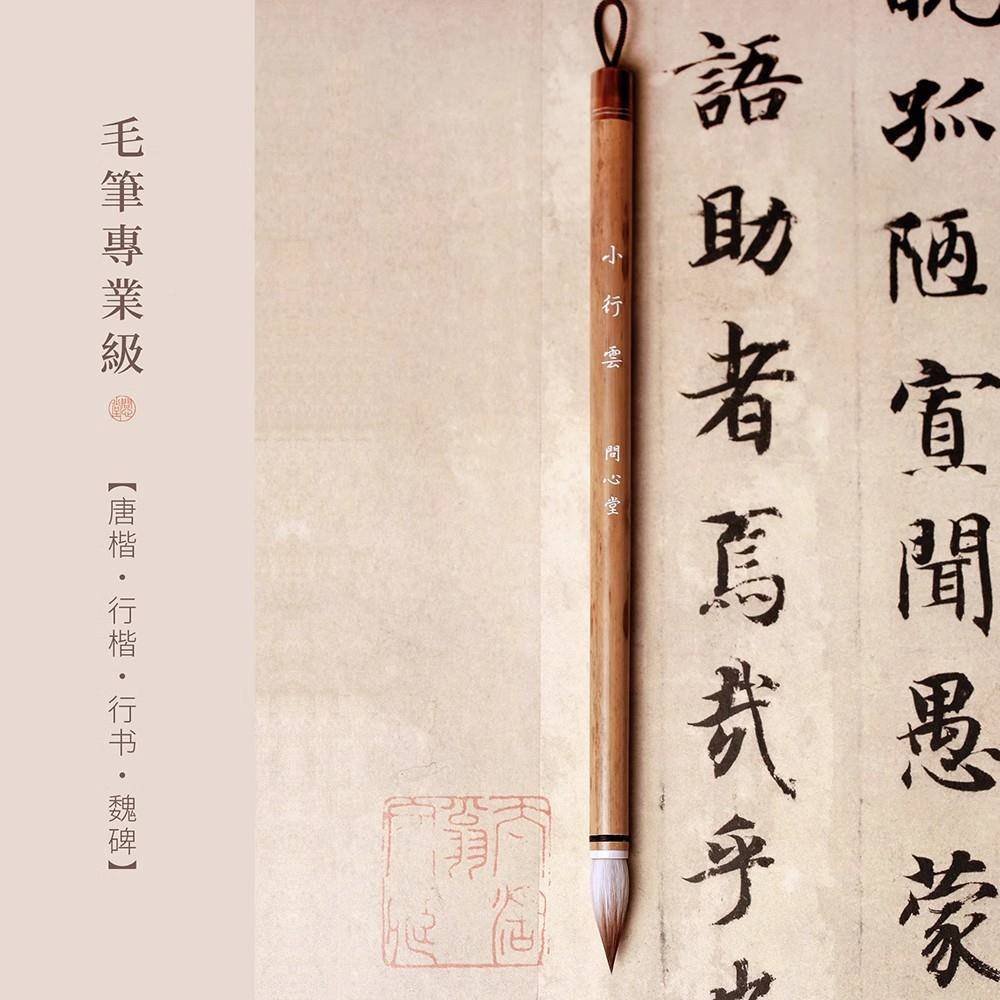 毛筆專業級
【唐楷·行楷·行书·魏碑】
小行雲 問心堂
孤陋寡聞愚蒙
語助者焉哉乎也